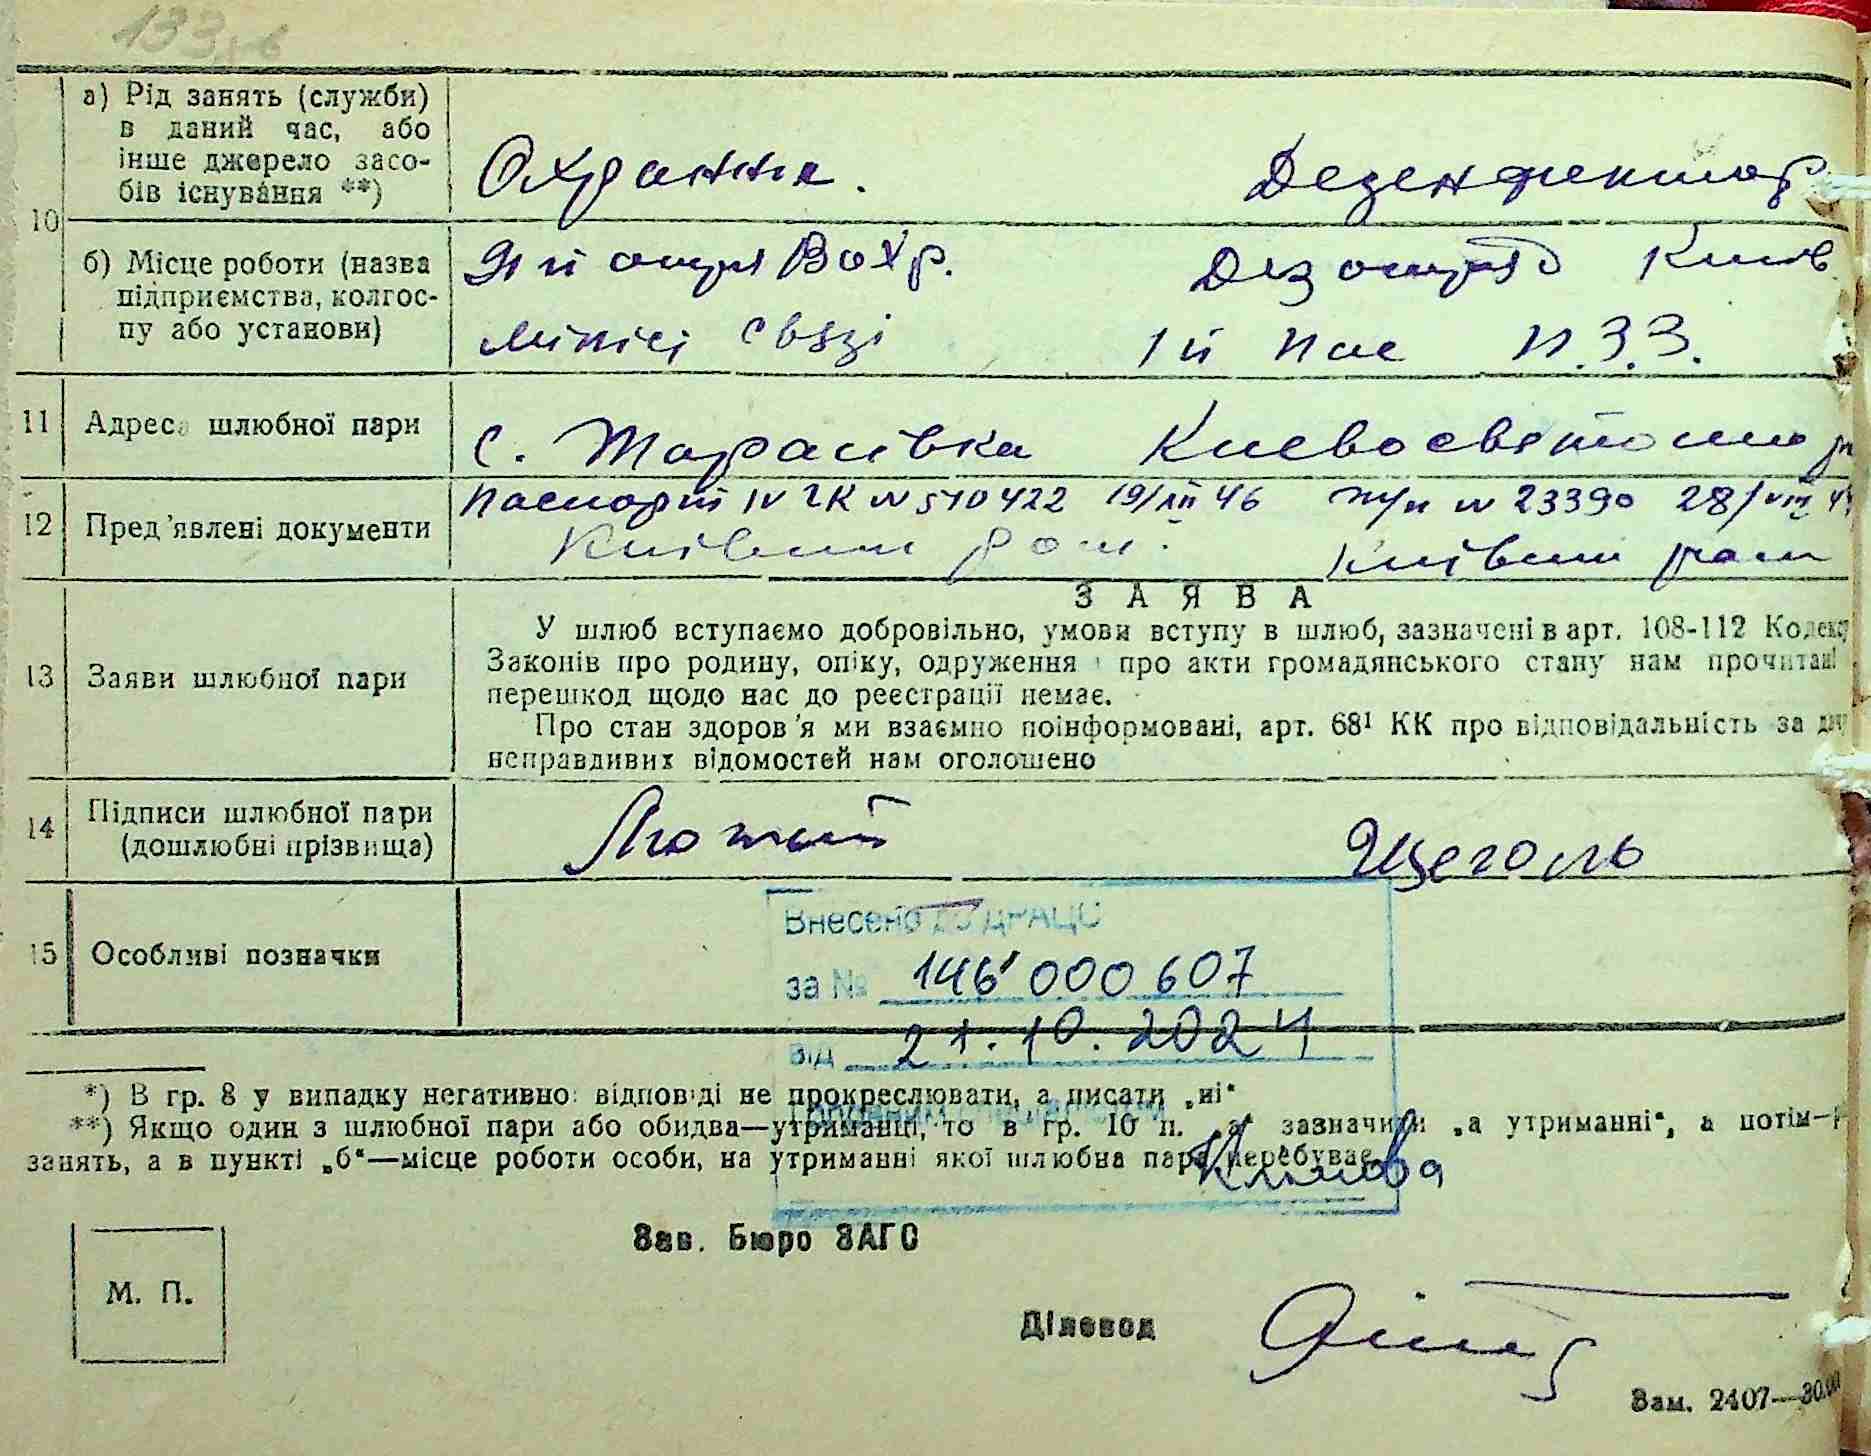 133
а) Рід занять (служби)
в даний час, або
інше джерело засо-
бів існування **)
Дезенфектор
10
б) Місце роботи (назва
підприємства, колгос-
пу або установи)
ВоХр. Дезотряд Київ
Мінісі Связі 1 й П.З.З.
11 Адреса шлюбної пари
с. Тарасівка Киевосвятошно
12 Пред'явлені документи
Паспорт IV ЧК N 510422 19/XII 46 N 23390 28/VIII
Київским Київским
13 Заяви шлюбної пари
ЗАЯВА
У шлюб вступаємо добровільно, умови вступу в шлюб, зазначені в арт. 108-112 Кодексу
Законів про родину, опіку, одруження про акти громадянського стану нам прочитані
перешкод щодо нас до реєстрації немає.
Про стан здоров'я ми взаємно поінформовані, арт. 68¹ КК про відповідальність за дачу
неправдивих відомостей нам оголошено
14 Підписи шлюбної пари
(дошлюбні прізвища)
Лютый Щеголь
15 Особливі позначки
Внесено до ДРАЦС
за № 146 000 607
від 21.10.2024
*) В гр. 8 у випадку негативно: відповіді не прокреслювати, а писати „ні“
**) Якщо один з шлюбної пари або обидва—утриманці, то в гр. 10 п. „а“ зазначити „а утриманні“, а потім—
занять, а в пункті „б“—місце роботи особи, на утриманні якої шлюбна пара перебуває.
Зав. Бюро ЗАГС
М. П.
Діловод
Зам. 2407—30.00